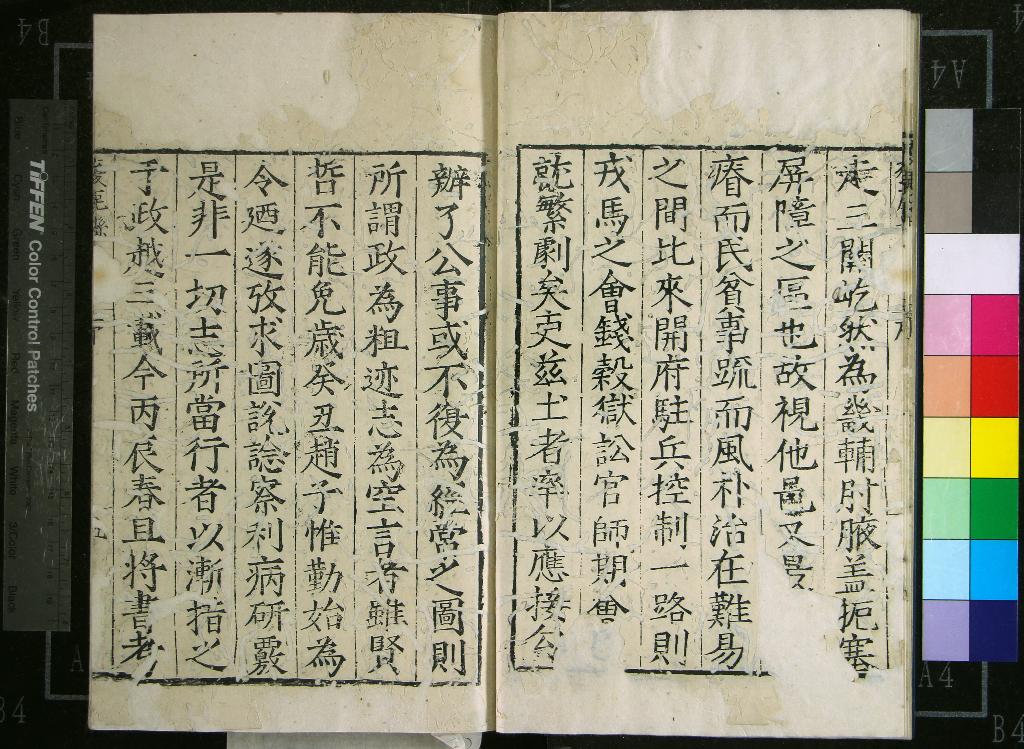 走三關屹然為畿輔肘腋盖扼塞
屏障之區也故視他邑又
瘠而民貧事䟽而風朴治在難易
之間比來開府駐兵控制一路則
戎馬之會錢穀獄訟官師期會
就繁劇矣吏兹土者率以應接公
辦了公事或不復為經常之圖則
所謂政為粗迹志為空言者雖賢
哲不能免歲癸丑趙子惟勤始為
令廼遂攷求圖說諗察利病研覈
是非一切志所當行者以漸指之
于政越三載今丙辰春且将書考
五
TIFFEN Color Control Patches
B4
A4
A4
B4